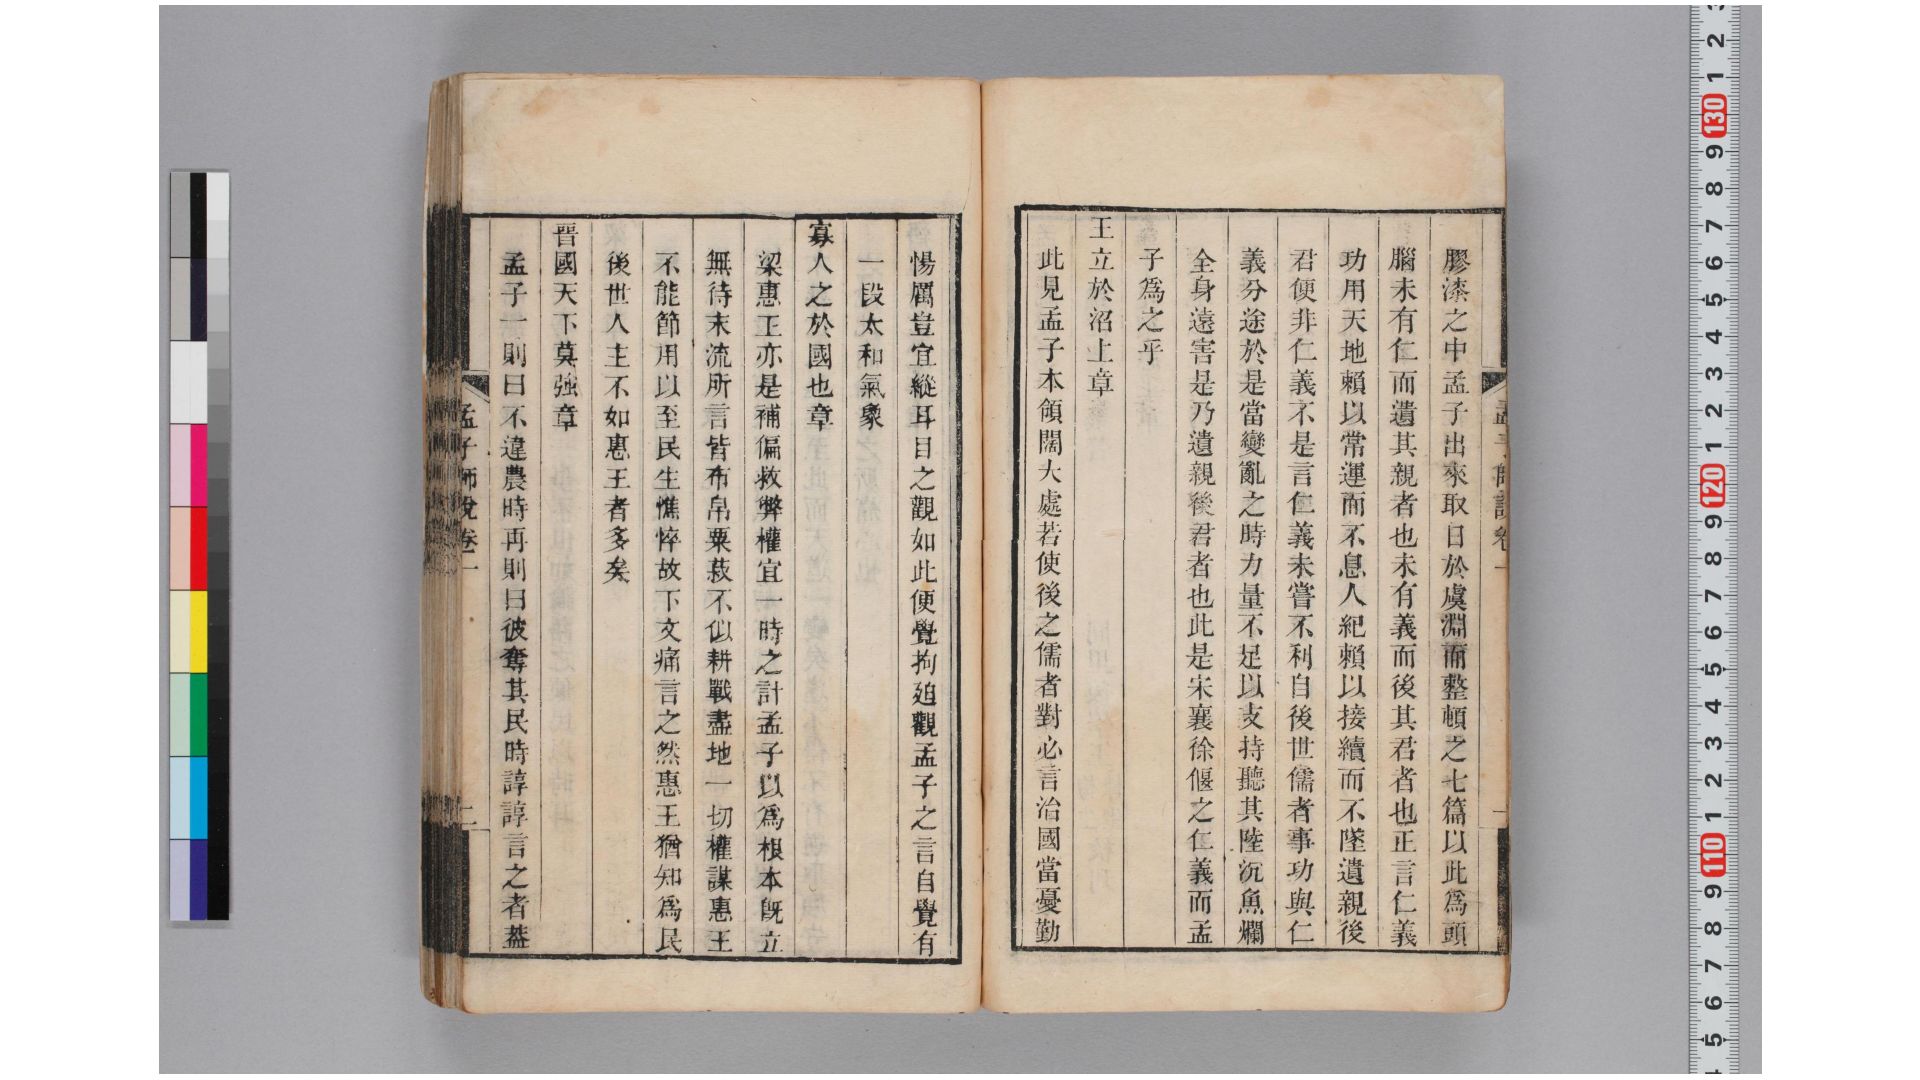 膠漆之中孟子出來取日於虞淵而整頓之七篇以此爲頭
腦未有仁而遺其親者也未有義而後其君者也正言仁義
功用天地賴以常運而不息人紀賴以接續而不墜遺親後
君便非仁義不是言仁義未嘗不利自後世儒者事功與仁
義分途於是當變亂之時力量不足以支持聽其陸沉魚爛
全身遠害是乃遺親後君者也此是宋襄徐偃之仁義而孟
子爲之乎
王立於沼上章
此見孟子本領闊大處若使後之儒者對必言治國當憂勤
惕厲豈宜縱耳目之觀如此便覺拘廹觀孟子之言自覺有
一段太和氣象
寡人之於國也章
梁惠王亦是補偏救弊權宜一時之計孟子以爲根本旣立
無待末流所言皆布帛粟菽不似耕戰盡地一切權謀惠王
不能節用以至民生憔悴故下文痛言之然惠王猶知爲民
後世人主不如惠王者多矣
晉國天下莫強章
孟子一則曰不違農時再則曰彼奪其民時諄諄言之者葢
孟子師說卷一
二
130
120
110